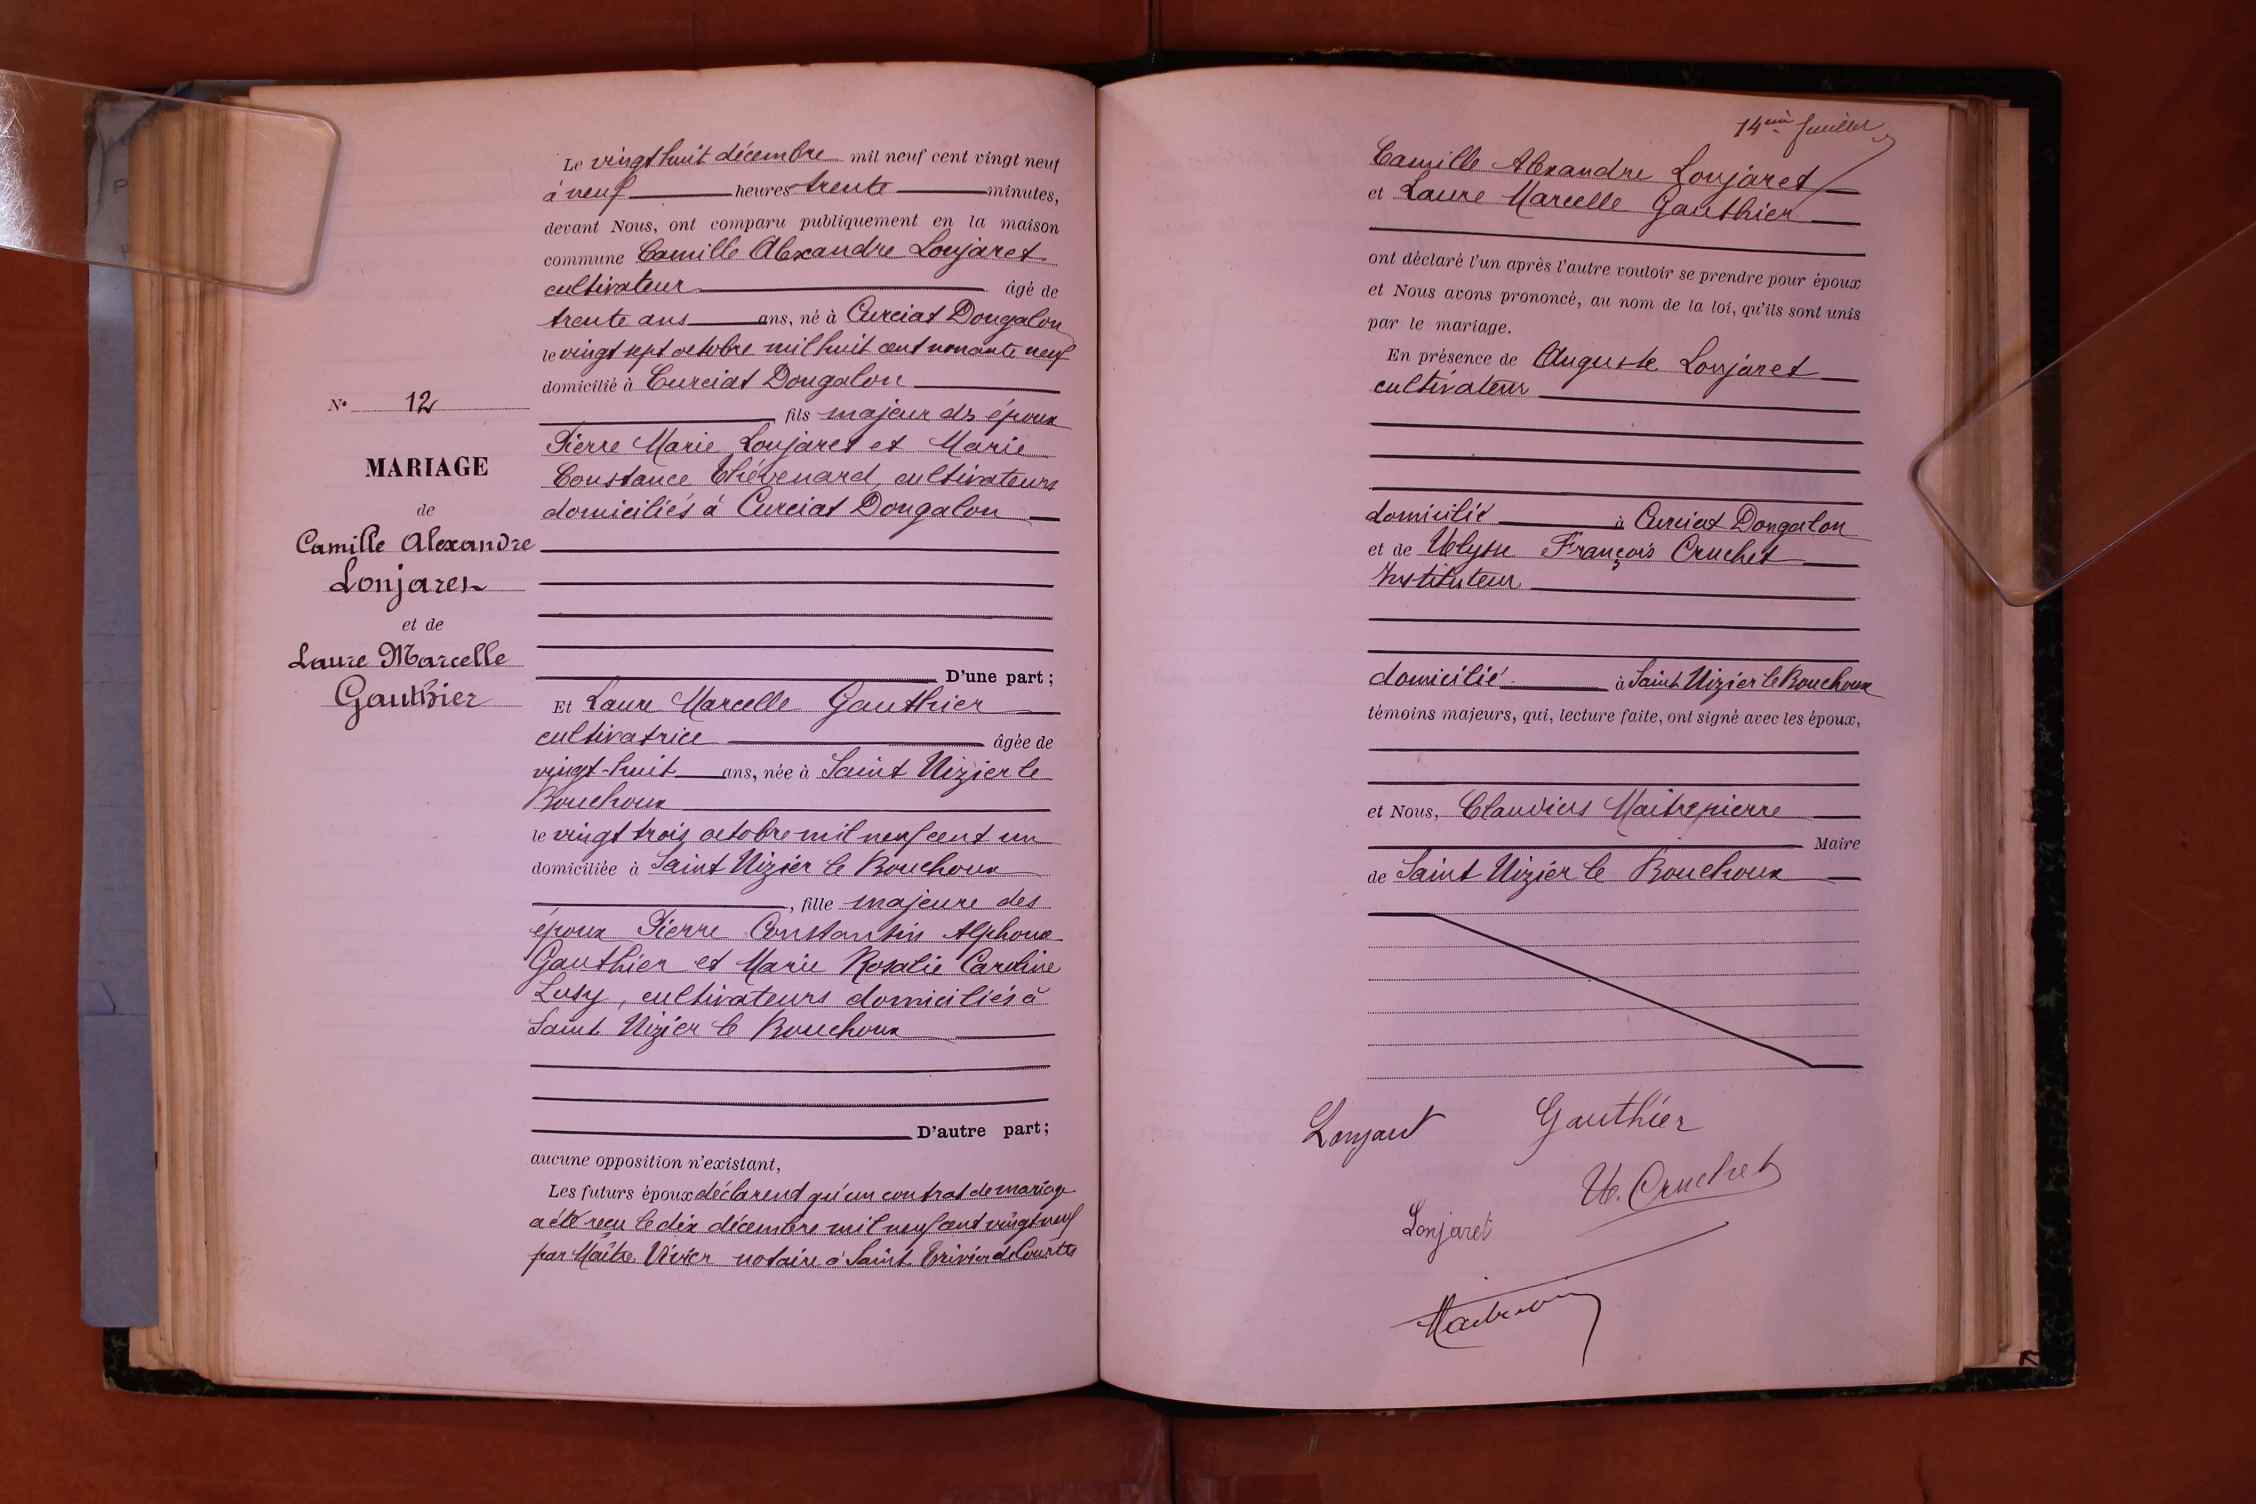 Le vingt huit décembre mil neuf cent vingt neuf
à neuf heures trente minutes,
devant Nous, ont comparu publiquement en la maison
commune Camille Alexandre Lonjaret
cultivateur âgé de
trente ans ans, né à Curciat Dongalon
le vingt sept octobre mil huit cent nonante neuf
domicilié à Curciat Dongalon
fils majeur des époux
Pierre Marie Lonjaret et Marie
Constance Thévenard, cultivateurs
domiciliés à Curciat Dongalon
N° 12
MARIAGE
de
Camille Alexandre
Lonjaret
et de
Laure Marcelle
Gauthier
D'une part ;
Et Laure Marcelle Gauthier
cultivatrice âgée de
vingt-huit ans, née à Saint Nizier le
Bouchoux
le vingt trois octobre mil neuf cent un
domiciliée à Saint Nizier le Bouchoux
, fille majeure des
époux Pierre Constantin Alphonse
Gauthier et Marie Rosalie Caroline
Lusy, cultivateurs domiciliés à
Saint Nizier le Bouchoux
D'autre part ;
aucune opposition n'existant,
Les futurs époux déclarent qu'un contrat de mariage
a été reçu le dix décembre mil neuf cent vingt neuf
par Maître Vivier notaire à Saint Trivier de Courtes
14ème feuillet
Camille Alexandre Lonjaret
et Laure Marcelle Gauthier
ont déclaré l'un après l'autre vouloir se prendre pour époux
et Nous avons prononcé, au nom de la loi, qu'ils sont unis
par le mariage.
En présence de Auguste Lonjaret
cultivateur
domicilié à Curciat Dongalon
et de Ulysse François Cruchet
Instituteur
domicilié à Saint Nizier le Bouchoux
témoins majeurs, qui, lecture faite, ont signé avec les époux,
et Nous, Claudius Maitrepierre
Maire
de Saint Nizier le Bouchoux
Lonjaret Gauthier
U. Cruchet
Lonjaret